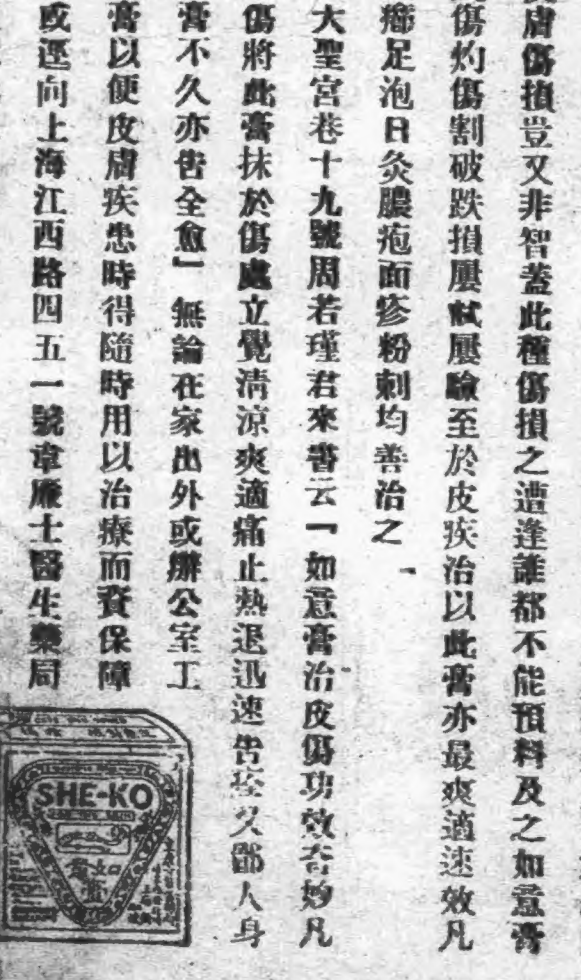 膚傷損豈又非智蓋此種傷損之遭逢誰都不能預料及之如意膏
傷灼傷割破跌損屢試屢驗至於皮疾治以此膏亦最爽適速效凡
癤足泡日灸膿疱面疹粉刺均善治之
大聖宮巷十九號周若瑾君來書云「如意膏治皮傷功效奇妙凡
傷將此膏抹於傷處立覺清涼爽適痛止熱退迅速告痊又鄙人身
膏不久亦告全愈」無論在家出外或辦公室工
膏以便皮膚疾患時得隨時用以治療而資保障
或逕向上海江西路四五一號韋廉士醫生藥局
SHE-KO
如意膏